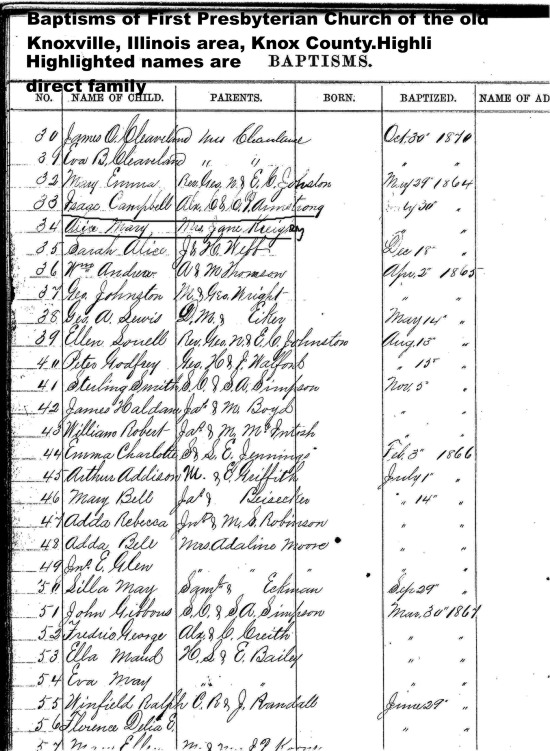 Baptisms of First Presbyterian Church of the old
Knoxville, Illinois area, Knox County.Highli
Highlighted names are BAPTISMS.
direct family
NO. NAME OF CHILD. PARENTS. BORN. BAPTIZED. NAME OF AD
30 James O. Cleaveland Mrs Cleaveland Oct. 30" 1870
31 Eva B. Cleaveland " "
32 Mary Emma Rev. Geo. N. & E. C. Johnston May 29" 1864
33 Isaac Campbell Alx. C. & C. P. Armstrong July 30" "
34 Alice Mary Mrs. Jane "
35 Sarah Alice J. & H. Webb Dec 18" "
36 Wm Andrew A & M Thomson Apr. 2" 1865
37 Geo. Johnston M. & Geo. Wright "
38 Geo. A. Lewis D. M. & Eiker May 14" "
39 Ellen Rev. Geo. N. & E. C. Johnston Aug. 13" "
40 Peter Godfrey Geo. H. & J. " 13" "
41 Sterling Smith S. C. & S. A. Simpson Nov. 5" "
42 James Haldam Jas & M. Boyd " "
43 William Robert Jas & M. McIntosh
44 Emma Charlotte S. & S. E. Jennings Feb. 3" 1866
45 Arthur Addison M. & E. Griffith July 1" "
46 Mary Bell Jas & Beisecker " 14" "
47 Adda Rebecca Jno & M. S. Robinson " "
48 Adda Bell Mrs Adaline Moore " "
49 Jno. E. Glen " " "
50 Silla May Saml & Eckman Sep 29" "
51 John Gibbons S. C. & S. A. Simpson Mar. 30" 1867
52 Fredric George Alx & C. Creith " "
53 Ella Maud H. S. & E. Bailey " "
54 Eva May " " " "
55 Winfield Ralph C. R & J. Randall June 29" "
56 Florence Delia E. " "
57